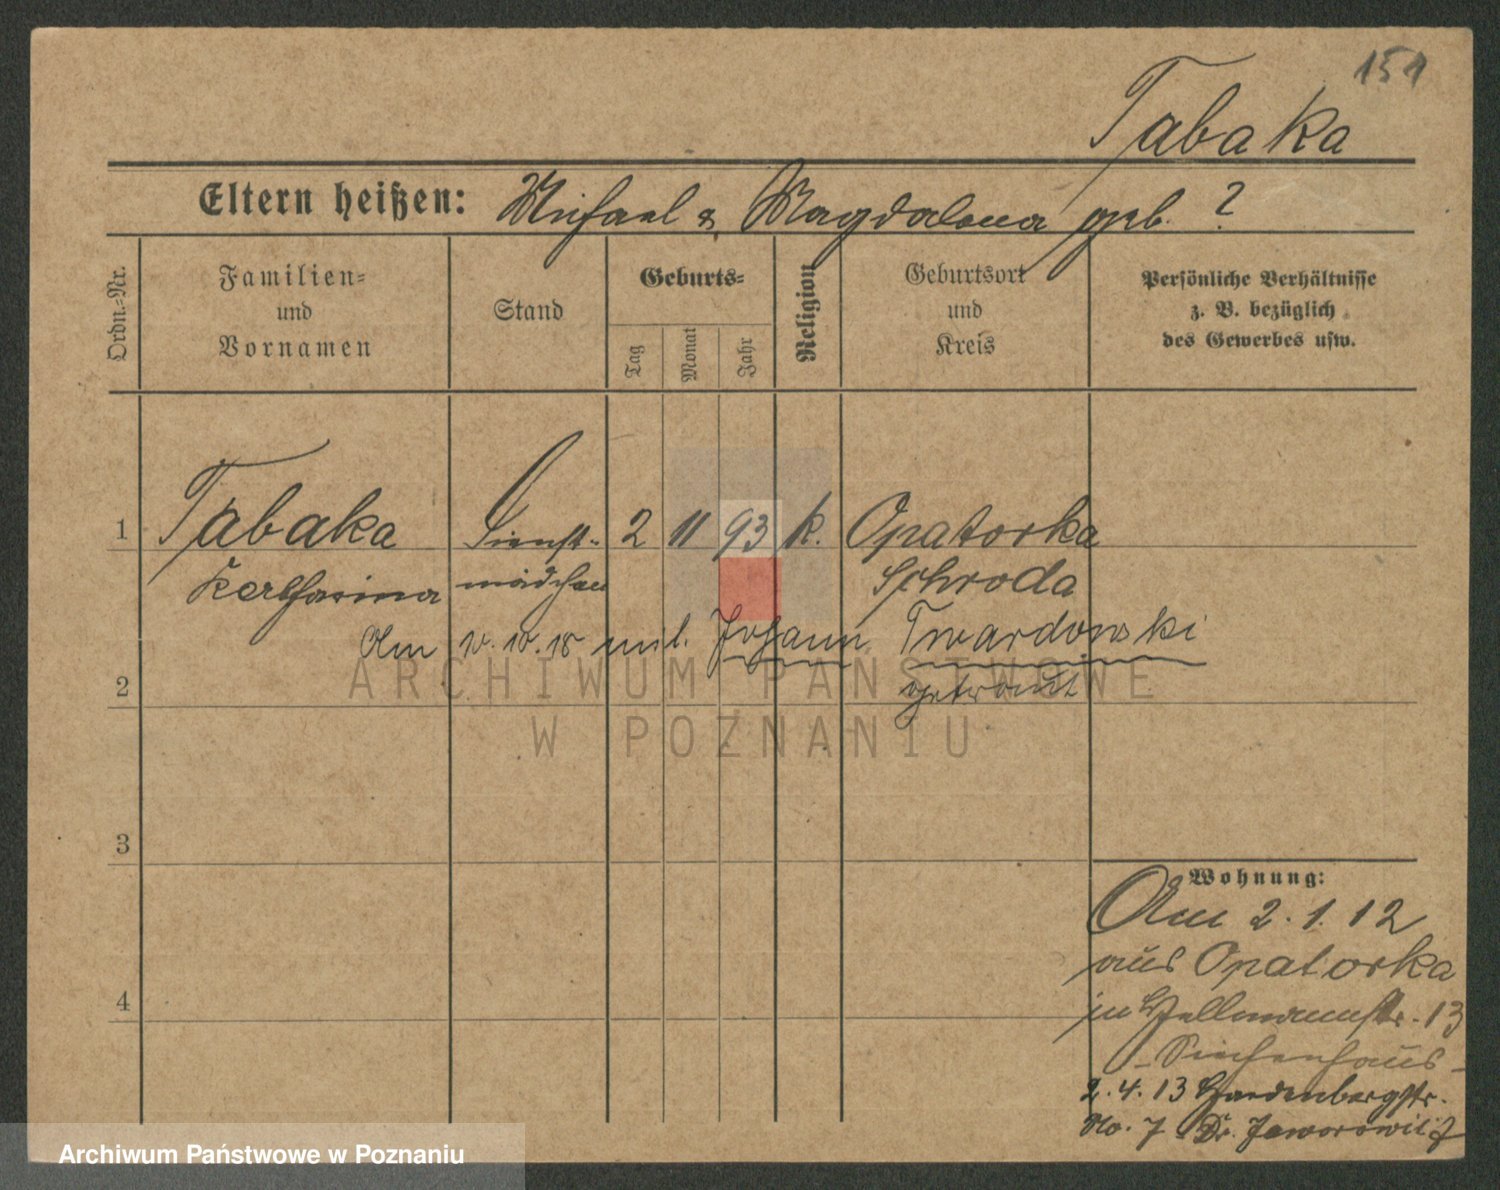 151
Tabaka
Eltern heißen: Michael & Magdalena geb. ?
Ordn.-Nr.
Familien-
und
Vornamen
Stand
Geburts-
Tag
Monat
Jahr
Religion
Geburtsort
und
Kreis
Persönliche Verhältnisse
z. B. bezüglich
des Gewerbes usw.
1 Tabaka Dienst- 2 11 93 k. Opatorka
Katharina mädchen Schroda
Am 10. 18 mit Johann Twardowski
2 getraut
3
4
Wohnung:
Am 2. 1. 12
aus Opatorka
in 13
- Siechenhaus -
2. 4. 13 Hardenbergstr.
No. 7 Dr.
ARCHIWUM PAŃSTWOWE
W POZNANIU
Archiwum Państwowe w Poznaniu